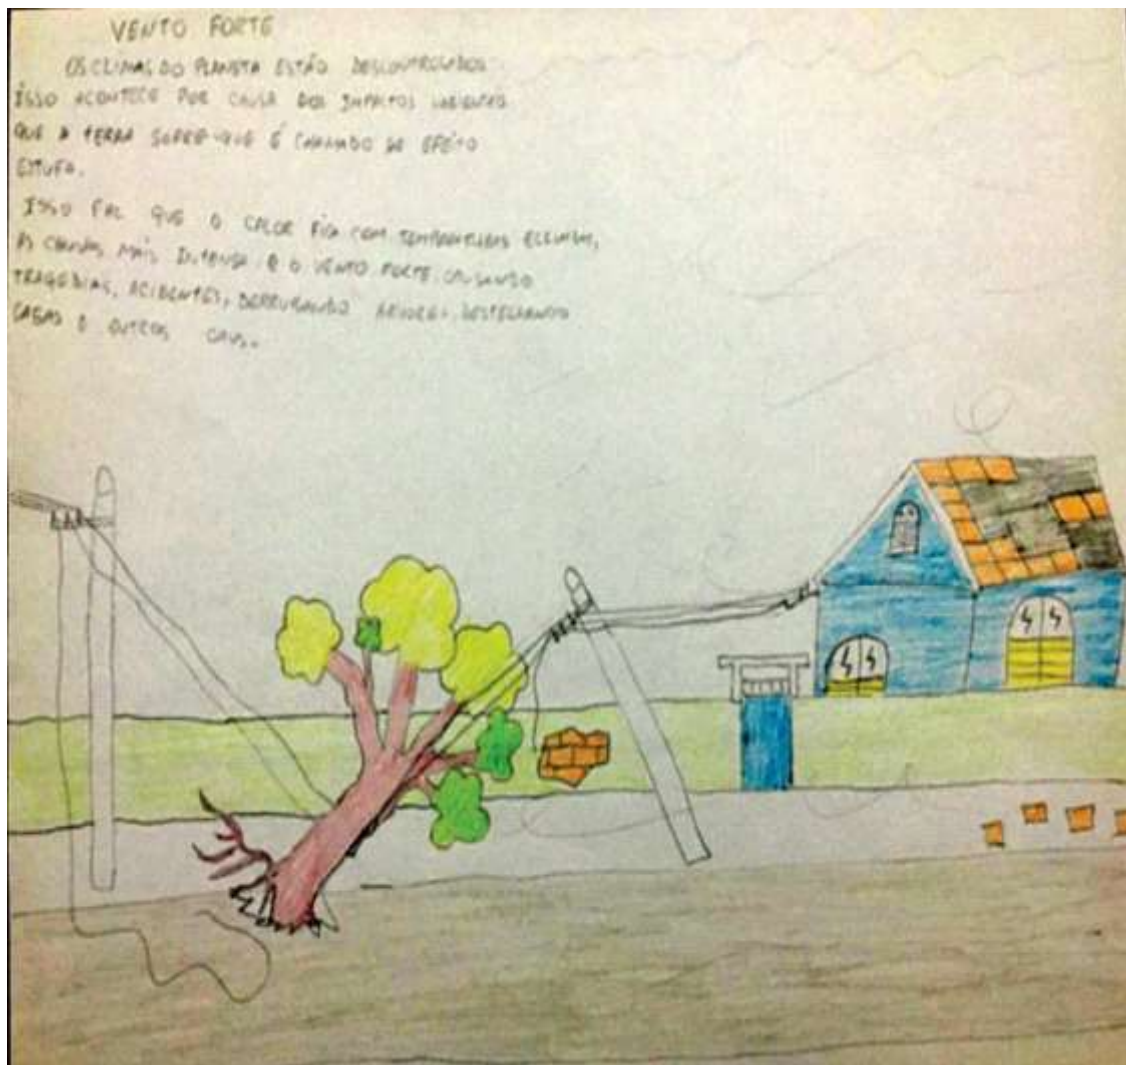 VENTO FORTE
OS CLIMAS DO PLANETA ESTÃO DESCONTROLADOS
ISSO ACONTECE POR CAUSA DOS IMPACTOS
QUE A TERRA SOFRE QUE É CHAMADO DE EFEITO
ESTUFA.
ISSO FAZ QUE O CALOR FICA COM TEMPERATURAS ELEVADAS,
AS CHUVAS MAIS INTENSA E O VENTO FORTE CAUSANDO
TRAGEDIAS, ACIDENTES, DERRUBANDO ARVORES, DESTELHANDO
CASAS E OUTROS